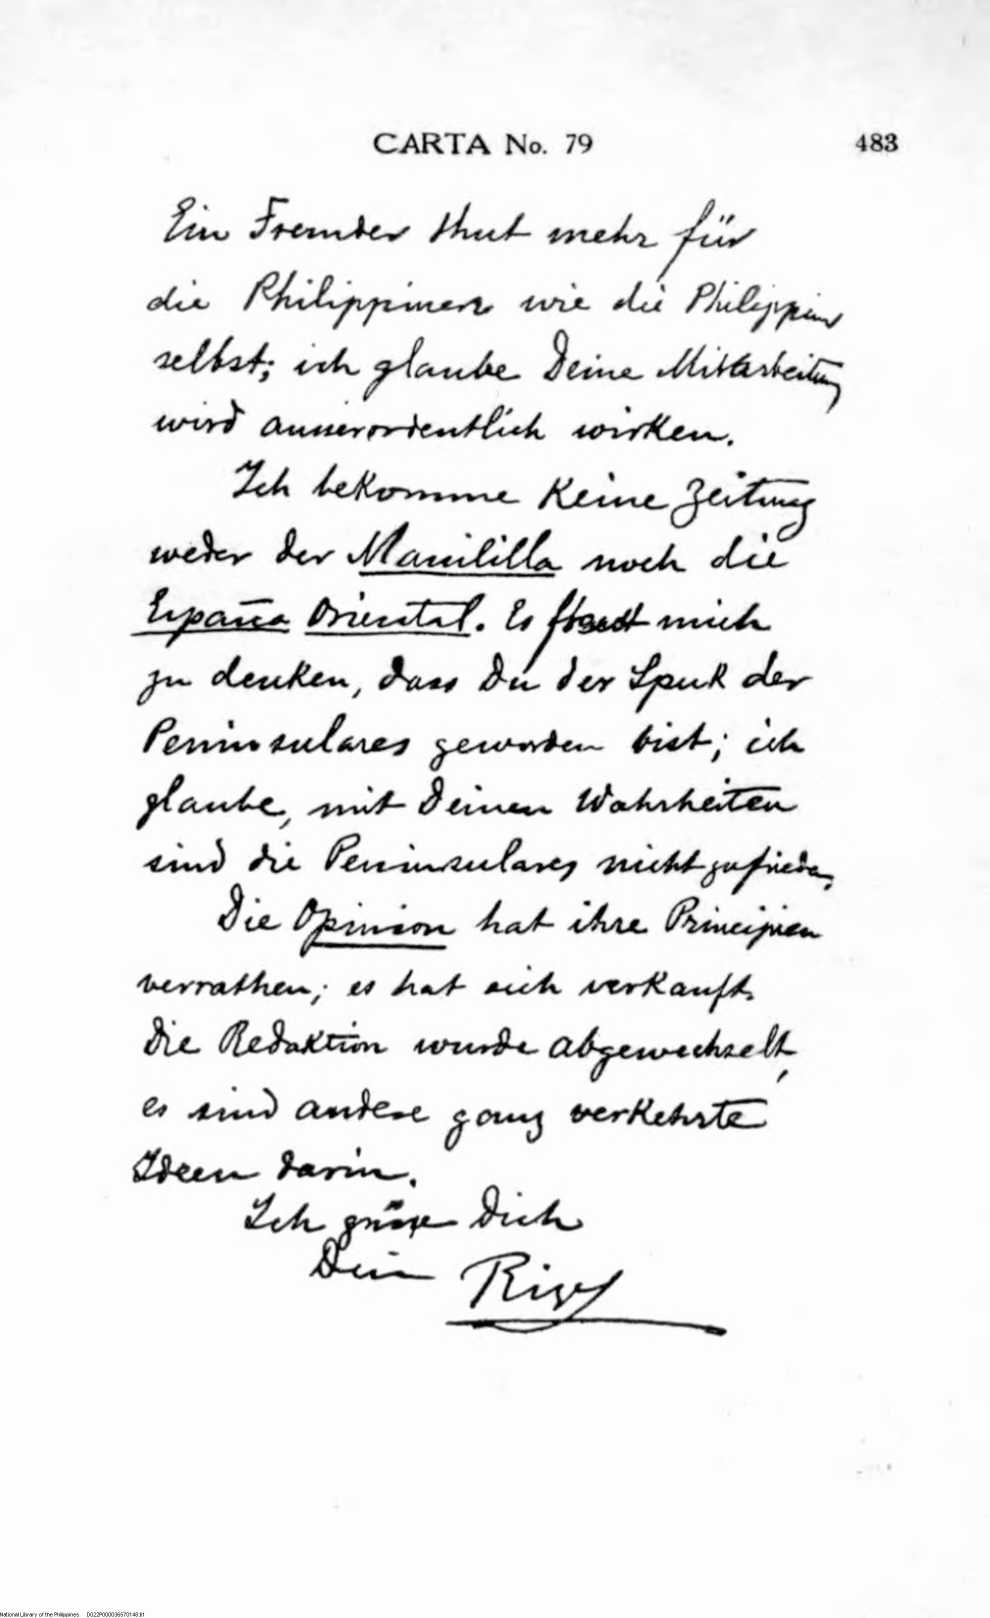 CARTA No. 79 483
Ein Fremder thut mehr für
die Philippinen wie die Philippiner
selbst; ich glaube Deine Mitarbeitung
wird ausserordentlich wirken.
Ich bekomme keine Zeitung
weder der Manililla noch die
España Oriental. Es freut mich
zu denken, dass Du der Spuk der
Peninsulares geworden bist; ich
glaube, mit Deinen Wahrheiten
sind die Peninsulares nicht zufrieden.
Die Opinion hat ihre Principien
verrathen; es hat sich verkauft.
Die Redaktion wurde abgewechselt,
es sind andere ganz verkehrte
Ideen darin.
Ich grüsse Dich
Dein Rizal
National Library of the Philippines